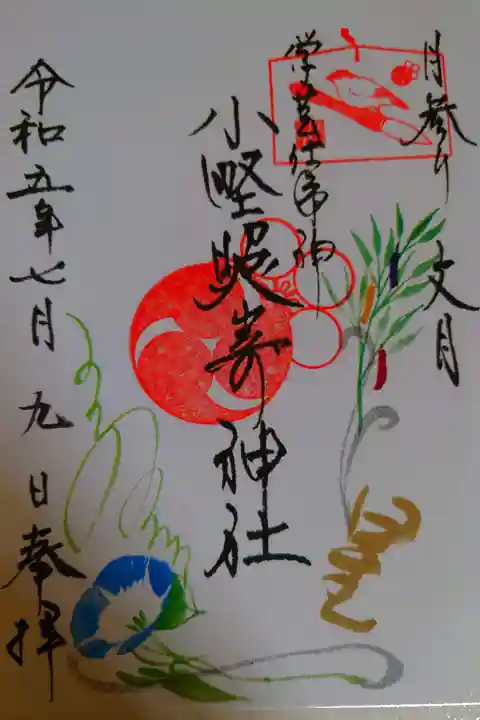 月参り 文月
学芸仕事神
小野照嵜神社
令和五年七月九日奉拝